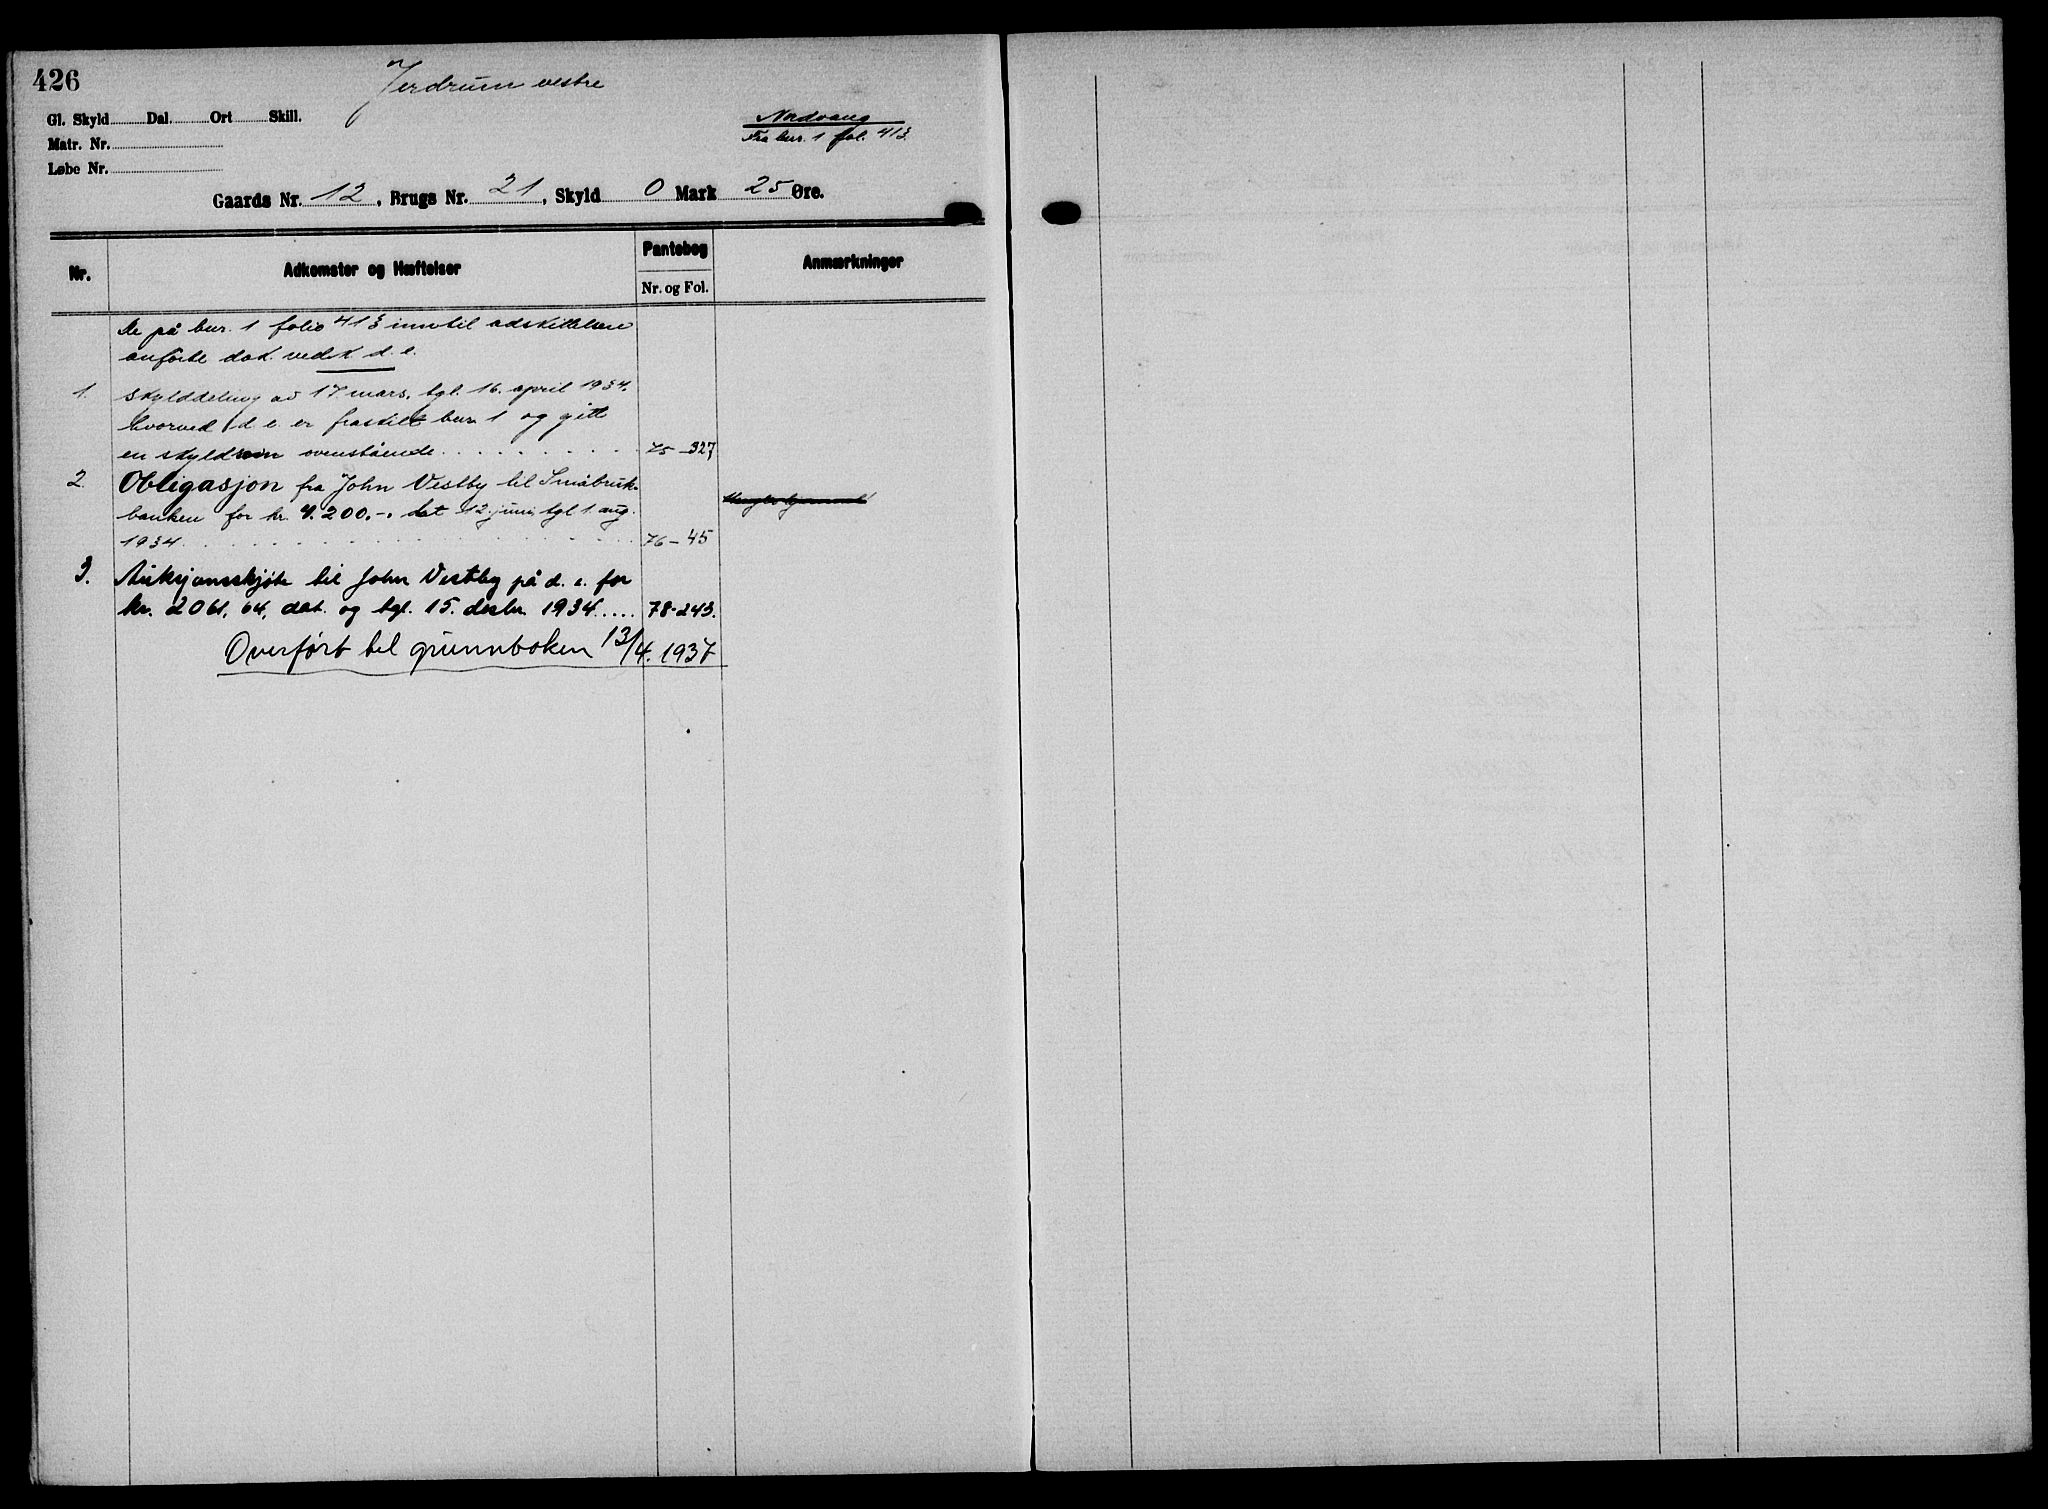 426
Jerdrum vestre
Gl. Skyld Dal. Ort Skill.
Matr. Nr.
Løbe Nr.
Nedvang
Fra bnr. 1 fol. 413.
Gaards Nr. 12, Brugs Nr. 21, Skyld 0 Mark 25 Øre.
Nr. Adkomster og Hæftelser Pantebog Nr. og Fol. Anmærkninger
De på bnr. 1 folio 413 inntil adskillelsen
anførte dok. vedk d. e.
1. Skylddeling av 17 mars, tgl. 16. april 1934.
hvorved d. e. er fraskilt bnr. 1 og gitt
en skyld som ovenstående 75-327
2. Obligasjon fra John Vestby til Småbruk-
banken for kr. 4.200.-. dat 12. juni, tgl 1. aug.
1934 76-45
3. Auksjonsskjøte til John Vestby på d. e. for
kr. 2061,64, dat. og tgl. 15. desbr. 1934 78-243.
Overført til grunnboken 13/4. 1937